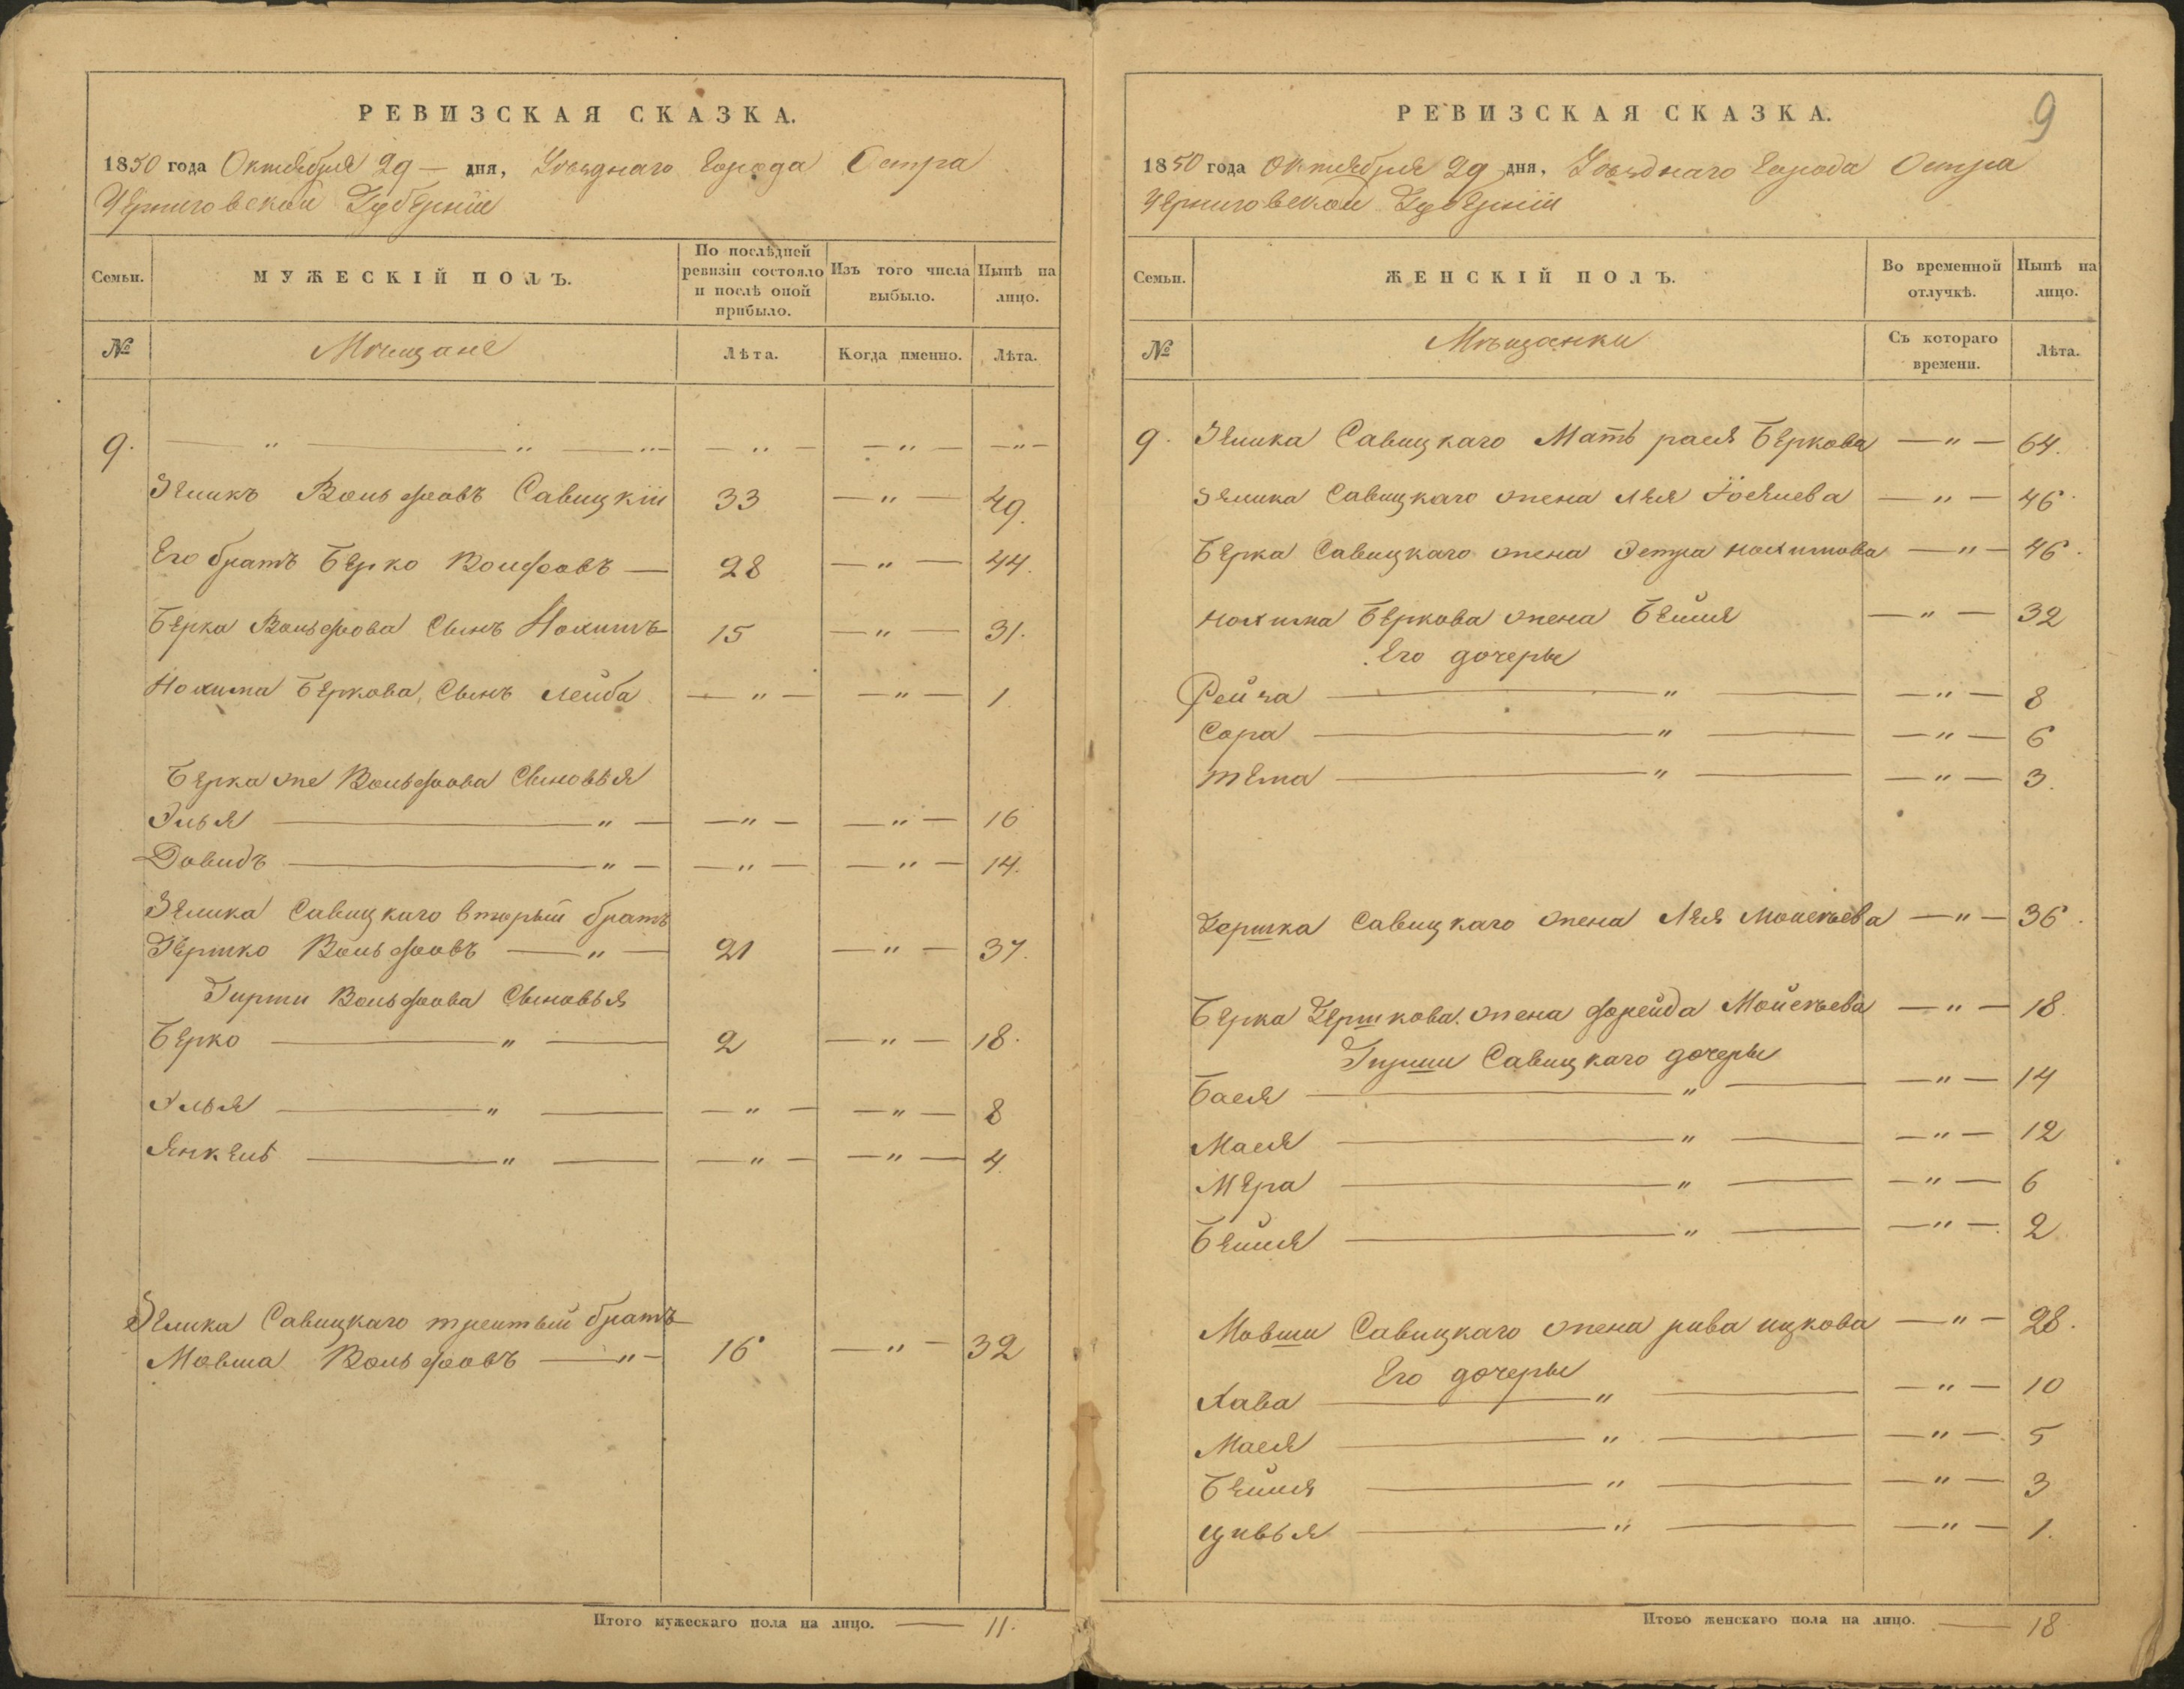 РЕВИЗСКАЯ СКАЗКА.
1850 года Октября 29 — дня, Уѣзднаго Города Остра
Черниговской Губерніи
Семьи.
МУЖЕСКІЙ ПОЛЪ.
По послѣдней ревизіи состояло и послѣ оной прибыло.
Изъ того числа выбыло.
Нынѣ на лицо.
№
Мѣщане
Лѣта.
Когда именно.
Лѣта.
9. — " — " — " — — " — — " — — " —
Зеликъ Вольфовъ Савицкій 33 — " — 49.
Его братъ Берко Вольфовъ — 28 — " — 44.
Берка Вольфова Сынъ Нохимъ 15 — " — 31.
Нохима Беркова, Сынъ Лейба — " — — " — 1.
Берка же Вольфова Сыновья
Элья — " — — " — — " — 16
Довидъ — " — — " — — " — 14.
Зелика Савицкаго вторый братъ
Гершко Вольфовъ — " — 21 — " — 37.
Гирши Вольфова Сыновья
Берко — " — 2 — " — 18.
Элья — " — — " — — " — 8
Янкель — " — — " — — " — 4.
Зелика Савицкаго третый братъ
Мовша Вольфовъ — " — 16 — " — 32
Итого мужескаго пола на лицо. — 11.
9
РЕВИЗСКАЯ СКАЗКА.
1850 года Октября 29 дня, Уѣзднаго Города Остра
Черниговской Губерніи
Семьи.
ЖЕНСКІЙ ПОЛЪ.
Во временной отлучкѣ.
Нынѣ на лицо.
№
Мѣщанки
Съ котораго времени.
Лѣта.
9. Зелика Савицкаго Мать рася Беркова — " — 64.
Зелика Савицкаго жена Лея — " — 46.
Берка Савицкаго жена Эстра Нохимова — " — 46.
Нохима Беркова жена Бейля — " — 32
Его дочеры
Рейза — " — — " — 8
Сора — " — — " — 6
Тема — " — — " — 3.
Гершка Савицкаго жена Лея Мойсѣева — " — 36.
Берка Гершкова жена Фрейда Мойсѣева — " — 18.
Гирши Савицкаго дочеры
Бася — " — — " — 14
Мася — " — — " — 12
Мера — " — — " — 6
Бейля — " — — " — 2
Мовши Савицкаго жена рива ицкова — " — 28.
Его дочеры
Хава — " — — " — 10
Мася — " — — " — 5
Бейля — " — — " — 3
Цивья — " — — " — 1.
Итого женскаго пола на лицо. — 18